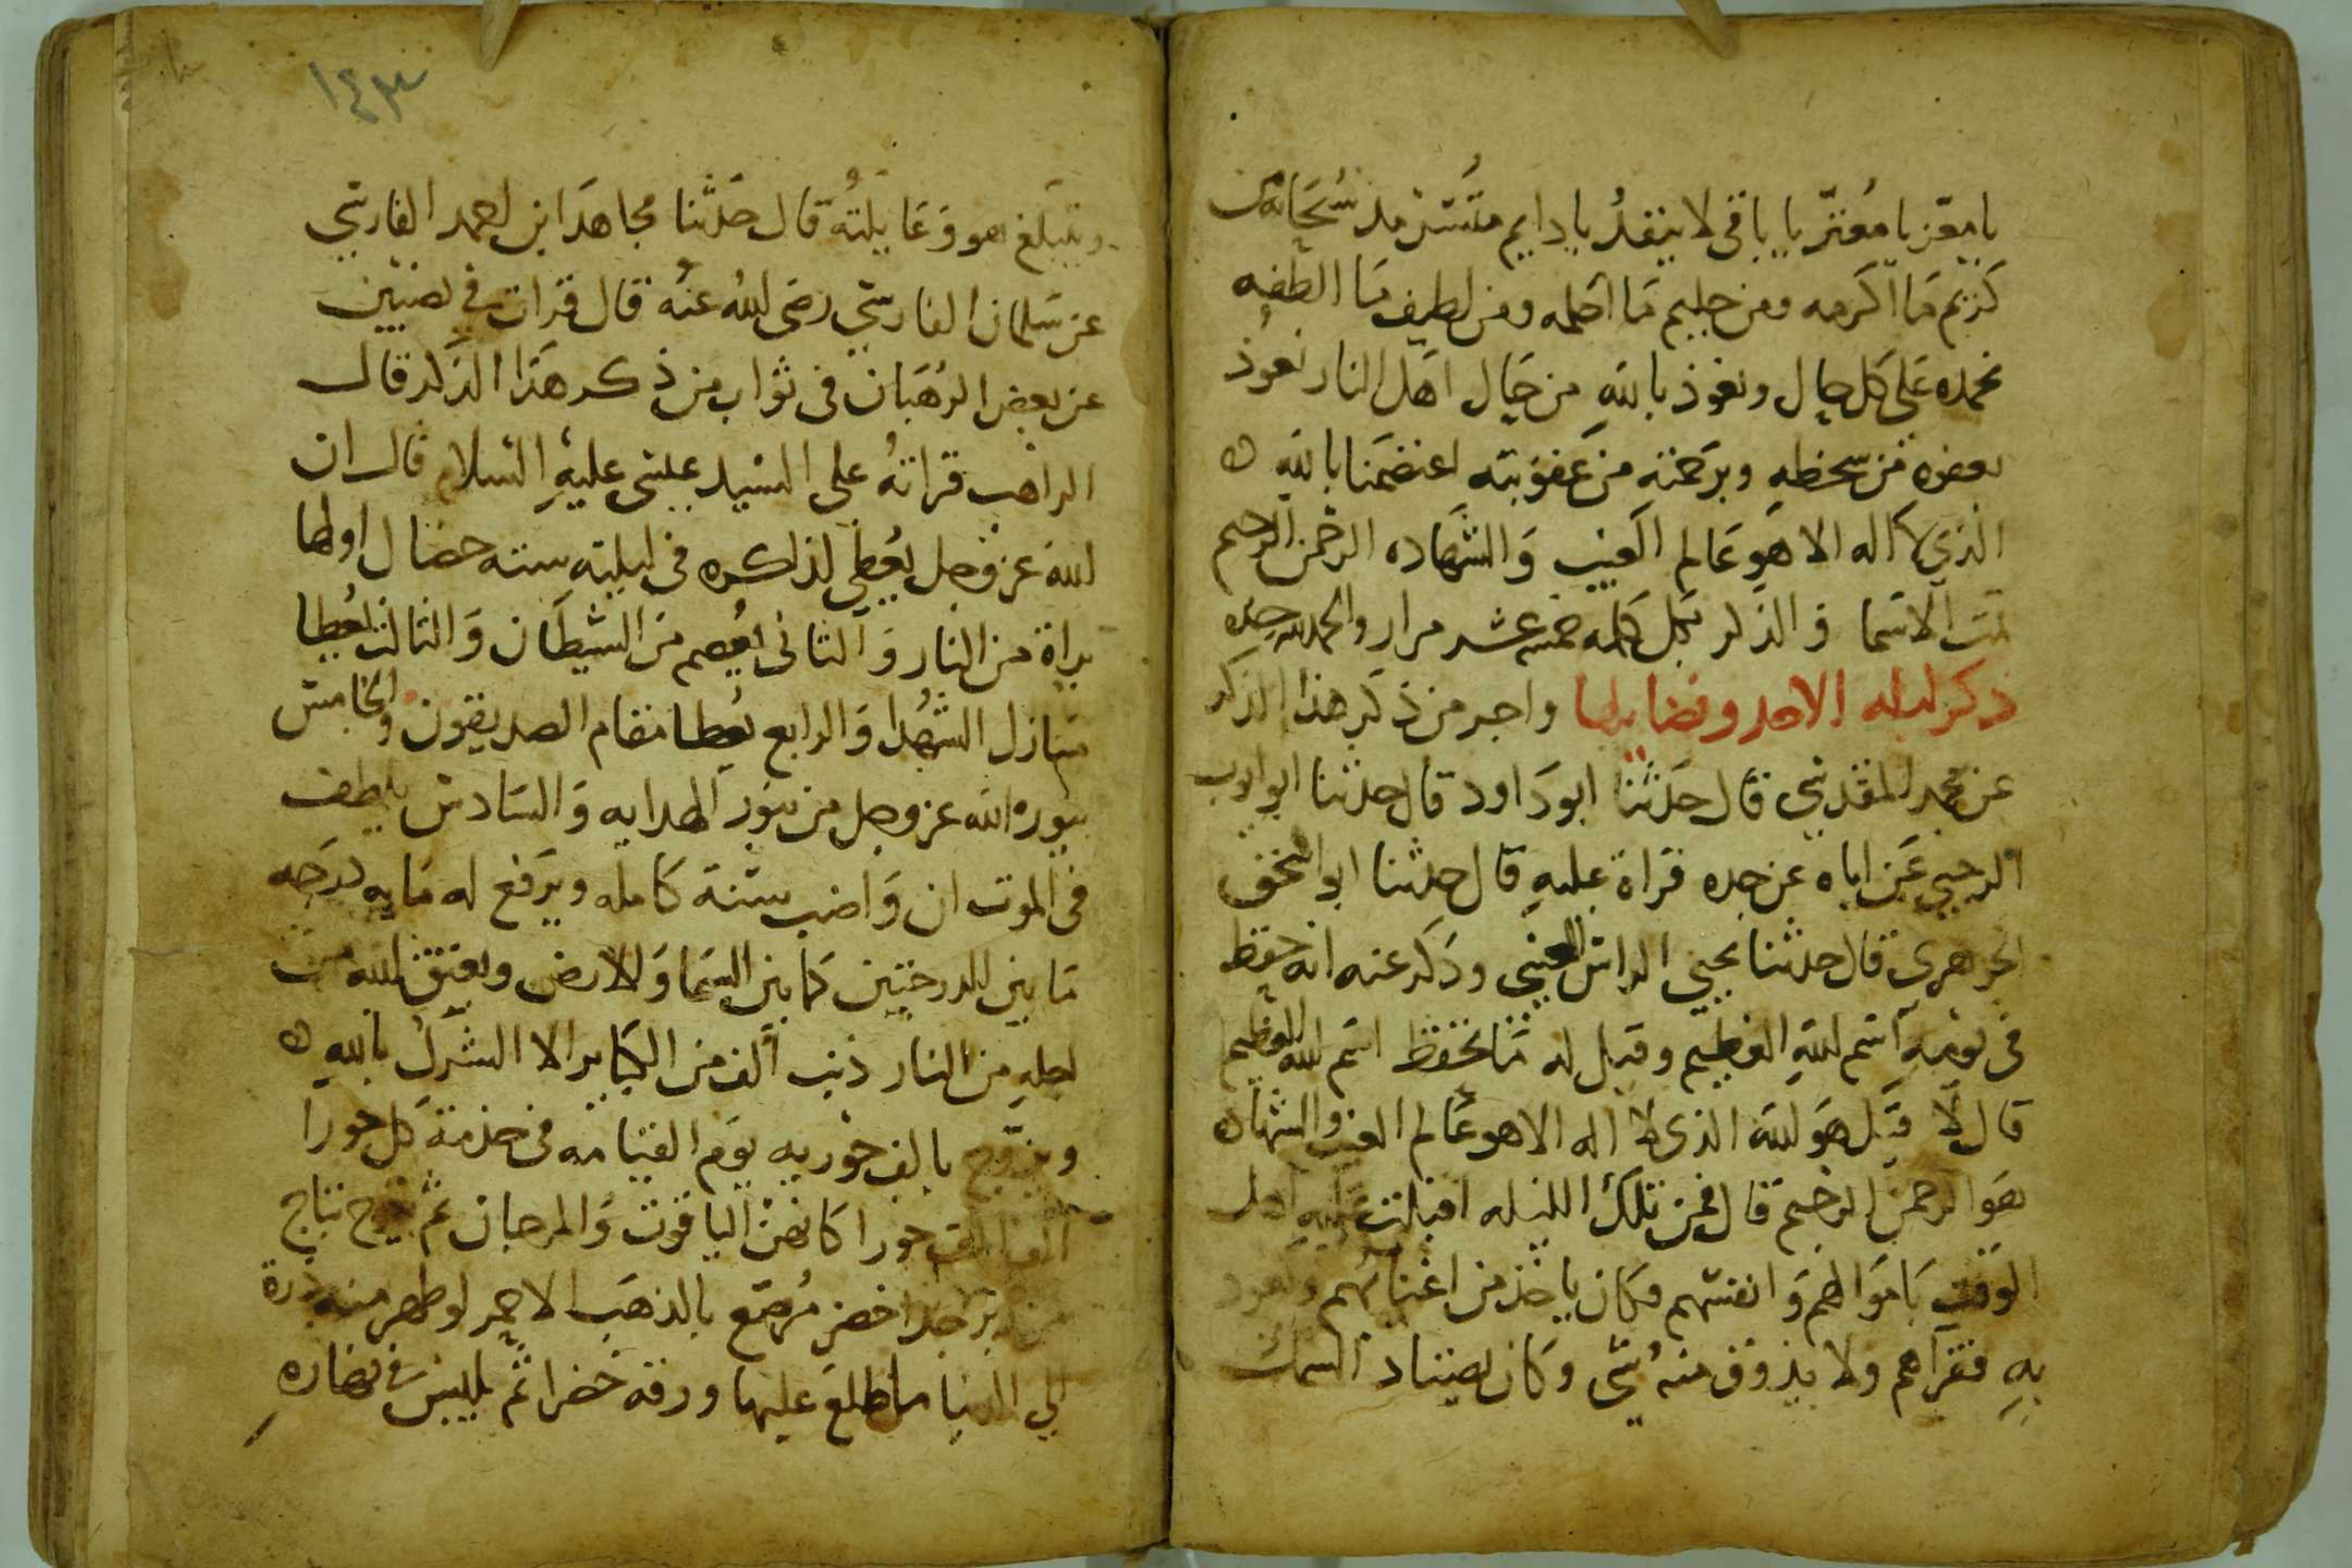 يا معز يا معتز يا باقي لا ينفد يا دايم متسرمد سبحانه من
كريم ما اكرمه ومن حليم ما احلمه ومن لطيف ما الطفه
نحمده على كل حال ونعوذ بالله من حال اهل النار نعوذ
بعفوه من سخطه وبرحمته من عقوبته اعتصمنا بالله
الذي لا اله الا هو عالم الغيب والشهاده الرحمن الرحيم
تمت الاسما والذكر كل كلمه خمسه عشر مرار والحمد لله وحده
ذكر ليله الاحد وفضايلها واجر من ذكر هذا الذكر
عن محمد المقدسي قال حدثنا ابو داود قال حدثنا ابو ايوب
الرحبي عن اباه عن جده قراة عليه قال حدثنا ابو
الجوهرى قال حدثنا يحيى وذكر عنه انه حفظ
في نومه اسم الله العظيم وقيل له ما تحفظ اسم الله العظيم
قال لا قيل هو الله الذى لا اله الا هو عالم الغيب والشهاده
هو الرحمن الرحيم قال فمن تلك الليله اقبلت عليه اهل
الوقت باموالهم وانفسهم فكان ياخذ من اغنيائهم ويعود
به فقراهم ولا يذوق منه شي وكان يصتاد السمك
١٤٣
ويتبلغ هو وعايلته قال حدثنا مجاهد ابن احمد الفارسي
عن سلمان الفارسي رضى الله عنه قال قرات في نصيبين
عن بعض الرهبان في ثواب من ذكر هذا الذكر قال
الراهب قراته على السيد عيسى عليه السلام قال ان
الله عز وجل يعطي لذاكره في ليلته سته خصال اولها
براة من النار والثاني يعصم من الشيطان والثالث يعطا
منازل الشهدا والرابع يعطا مقام الصديقون والخامس
ينوره الله عز وجل من نور الهدايه والسادس يلطف
في الموت ان واضب سنة كامله ويرفع له مايه درجه
ما بين الدرجتين كما بين السما والارض ويعتق الله من
اجله من النار ذنب الف من الكباير الا الشرك بالله
ويزوج بالف حوريه يوم القيامه في خدمة كل حورا
الف الف حورا كانهن الياقوت والمرجان ثم يتوج بتاج
من زبرجد اخضر مرصع بالذهب الاحمر لو ظهر منه ذرة
الي الدنيا ما طلع عليها ورقه خضرا ثم يلبس في نهاره